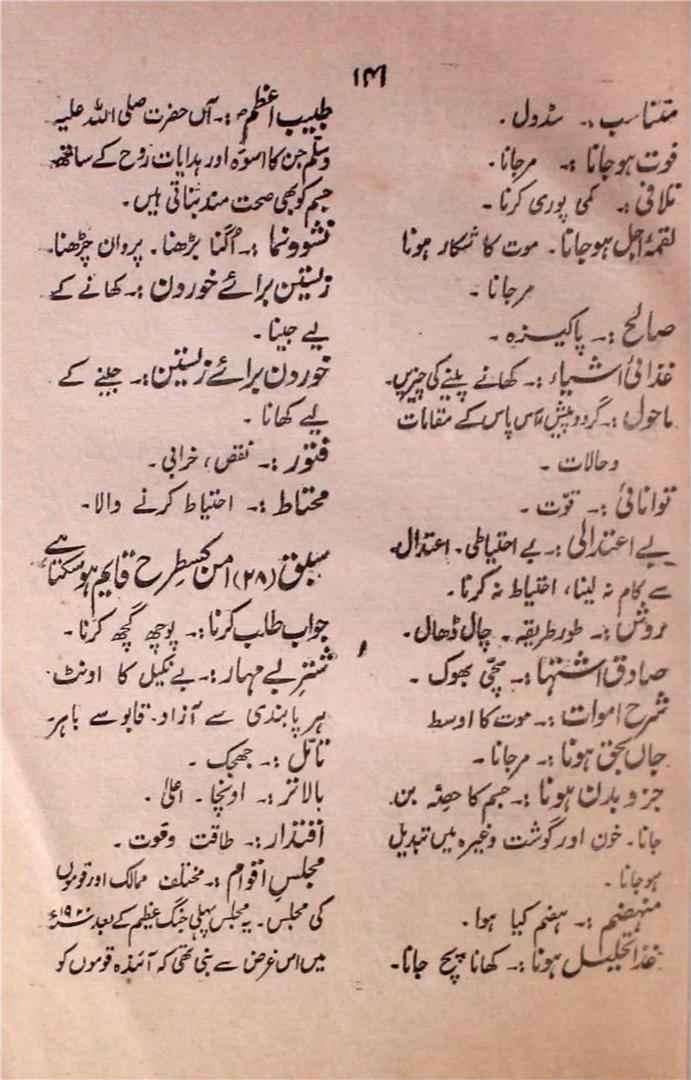 ۱۴۱
متناسب :۔ سڈول ۔
فوت ہوجانا :۔ مرجانا۔
تلافی :۔ کمی پوری کرنا ۔
لقمۂ اجل ہوجانا۔ موت کا شکار ہونا
مرجانا ۔
صالح :۔ پاکیزہ ۔
غذائی اشیاء :۔ کھانے پینے کی چیزیں۔
ماحول :۔ گردوپیش آس پاس کے مقامات
وحالات ۔
توانائی :۔ قوّت ۔
بے اعتدالی :۔ بے احتیاطی۔ اعتدال
سے کام نہ لینا، احتیاط نہ کرنا۔
روش :۔ طور طریقہ ۔ چال ڈھال۔
صادق اشتہا :۔ سچّی بھوک ۔
شرح اموات :۔ موت کا اوسط
جاں بحق ہونا :۔ مرجانا ۔
جزو بدن ہونا :۔ جسم کا حصّہ بن
جانا۔ خون اور گوشت وغیرہ میں تبدیل
ہوجانا ۔
منہضم :۔ ہضم کیا ہوا۔
غذا تحلیل ہونا :۔ کھانا پچ جانا۔
طبیب اعظمؐ :۔ آں حضرت صلی اللہ علیہ
وسلّم جن کا اسوہ اور ہدایات رُوح کے ساتھ
جسم کو بھی صحت مند بناتی ہیں۔
نشوونما :۔ اُگنا بڑھنا۔ پروان چڑھنا۔
زیستن برائے خوردن :۔ کھانے کے
لیے جینا۔
خوردن برائے زیستن :۔ جینے کے
لیے کھانا ۔
فتور :۔ نقص، خرابی ۔
محتاط :۔ احتیاط کرنے والا۔
سبق (۲۸) امن کسطرح قایم ہوسکتا ہے
جواب طلب کرنا :۔ پوچھ گچھ کرنا ۔
شتر بے مہار :۔ بے نکیل کا اونٹ
ہر پابندی سے آزاد۔ قابو سے باہر
تامل :۔ جھجک ۔
بالاتر :۔ اونچا ۔ اعلیٰ ۔
اقتدار :۔ طاقت وقوت ۔
مجلس اقوام :۔ مختلف ممالک اور قوموں
کی مجلس ۔ یہ مجلس پہلی جنگ عظیم کے بعد ۱۹۲۰ء
میں اس غرض سے بنی تھی کہ آئندہ قوموں کو